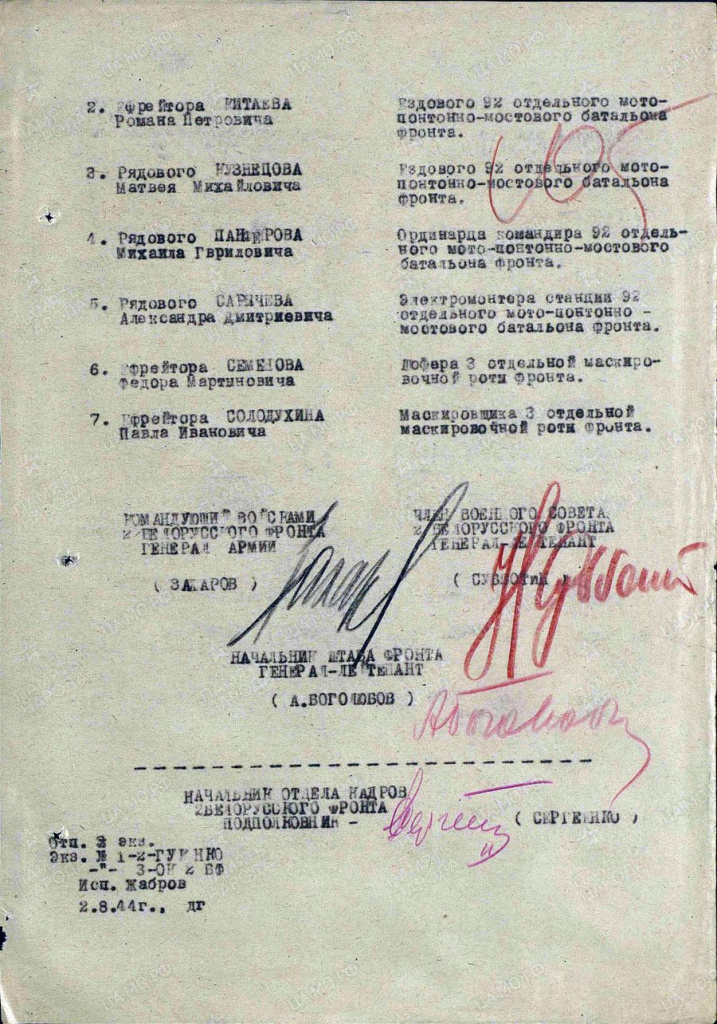 2. Ефрейтора КИТАЕВА
Романа Петровича
Ездового 92 отдельного мото-
понтонно-мостового батальона
фронта.
3. Рядового КУЗНЕЦОВА
Матвея Михайловича
Ездового 92 отдельного мото-
понтонно-мостового батальона
фронта.
4. Рядового
Михаила Гвриловича
Ординарца командира 92 отдель-
ного мото-понтонно-мостового
батальона фронта.
5. Рядового САРЫЧЕВА
Александра Дмитриевича
Электромонтера станции 92
отдельного мото-понтонно -
мостового батальона фронта.
6. Ефрейтора СЕМЕНОВА
Федора Мартыновича
Шофера 3 отдельной маскиро-
вочной роты фронта.
7. Ефрейтора СОЛОДУХИНА
Павла Ивановича
Маскировщика 3 отдельной
маскировочной роты фронта.
КОМАНДУЮЩИЙ ВОЙСКАМИ
2 БЕЛОРУССКОГО ФРОНТА
ГЕНЕРАЛ АРМИИ
( ЗАХАРОВ )
ЧЛЕН ВОЕННОГО СОВЕТА
2 БЕЛОРУССКОГО ФРОНТА
ГЕНЕРАЛ-ЛЕЙТЕНАНТ
( СУББОТИН )
НАЧАЛЬНИК ШТАБА ФРОНТА
ГЕНЕРАЛ-ЛЕЙТЕНАНТ
( А.БОГОЛЮБОВ )
НАЧАЛЬНИК ОТДЕЛА КАДРОВ
2БЕЛОРУССКОГО ФРОНТА
ПОДПОЛКОВНИК -
( СЕРГЕЕНКО )
Отп. 3 экз.
Экз. № 1-2-ГУК НКО
-"- 3-ОК 2 БФ
Исп. Жабров
2.8.44г., дг